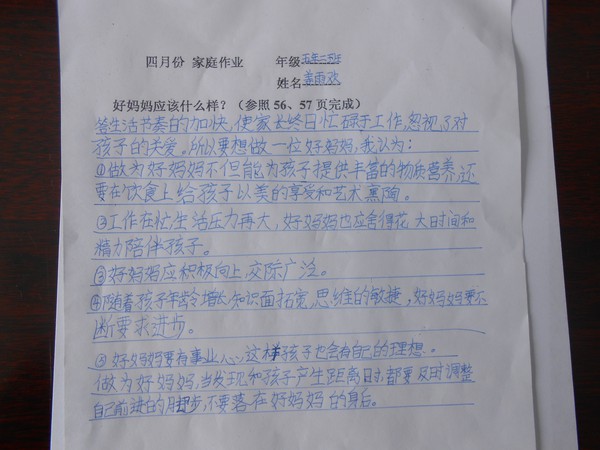 四月份 家庭作业 年级五年二班
姓名姜雨欢
好妈妈应该什么样？（参照 56、57 页完成）
答生活节奏的加快，使家长终日忙碌于工作，忽视了对
孩子的关爱。所以要想做一位好妈妈，我认为：
①做为好妈妈不但能为孩子提供丰富的物质营养，还
要在饮食上给孩子以美的享受和艺术熏陶。
②工作在忙，生活压力再大，好妈妈也应舍得花大时间和
精力陪伴孩子。
③好妈妈应积极向上，交际广泛。
④随着孩子年龄增长，知识面拓宽，思维的敏捷，好妈妈要不
断要求进步。
⑤好妈妈要有事业心，这样孩子也会有自己的理想。
做为好妈妈，当发现和孩子产生距离时，都要及时调整
自己前进的脚步，不要落在好妈妈的身后。